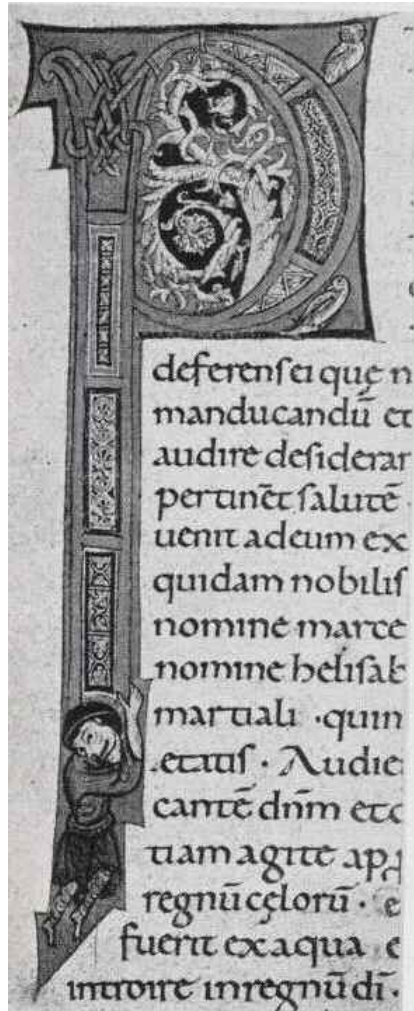 P
deferens ei quę n
manducandū et
audire desiderar
pertinēt salutē
uenit adeum ex
quidam nobilis
nomine marce
nomine helisab
martiali · quin
etatis · Audie
cantē dn̄m etc
tiam agite ap
regnū cęlorū · e
fuerit ex aqua e
introire in regnū dī ·